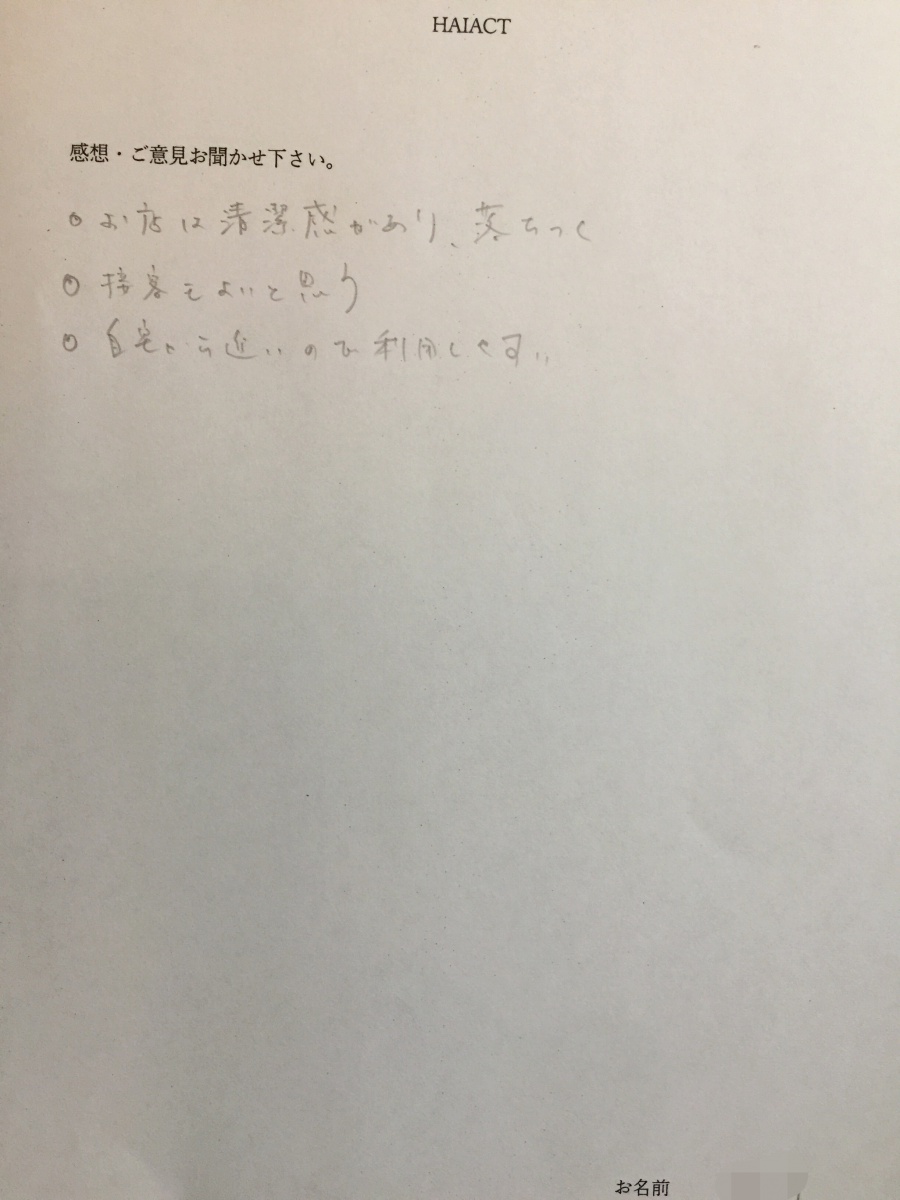 HAIACT
感想・ご意見お聞かせ下さい。
○ お店は清潔感があり、落ちつく
○ 接客もよいと思う
○ 自宅から近いので利用しやすい
お名前